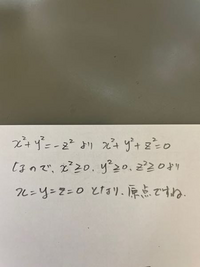 x²+y²=-z² より x²+y²+z²=0
なので、x²≧0, y²≧0, z²≧0より
x=y=z=0 となり、原点ですね.